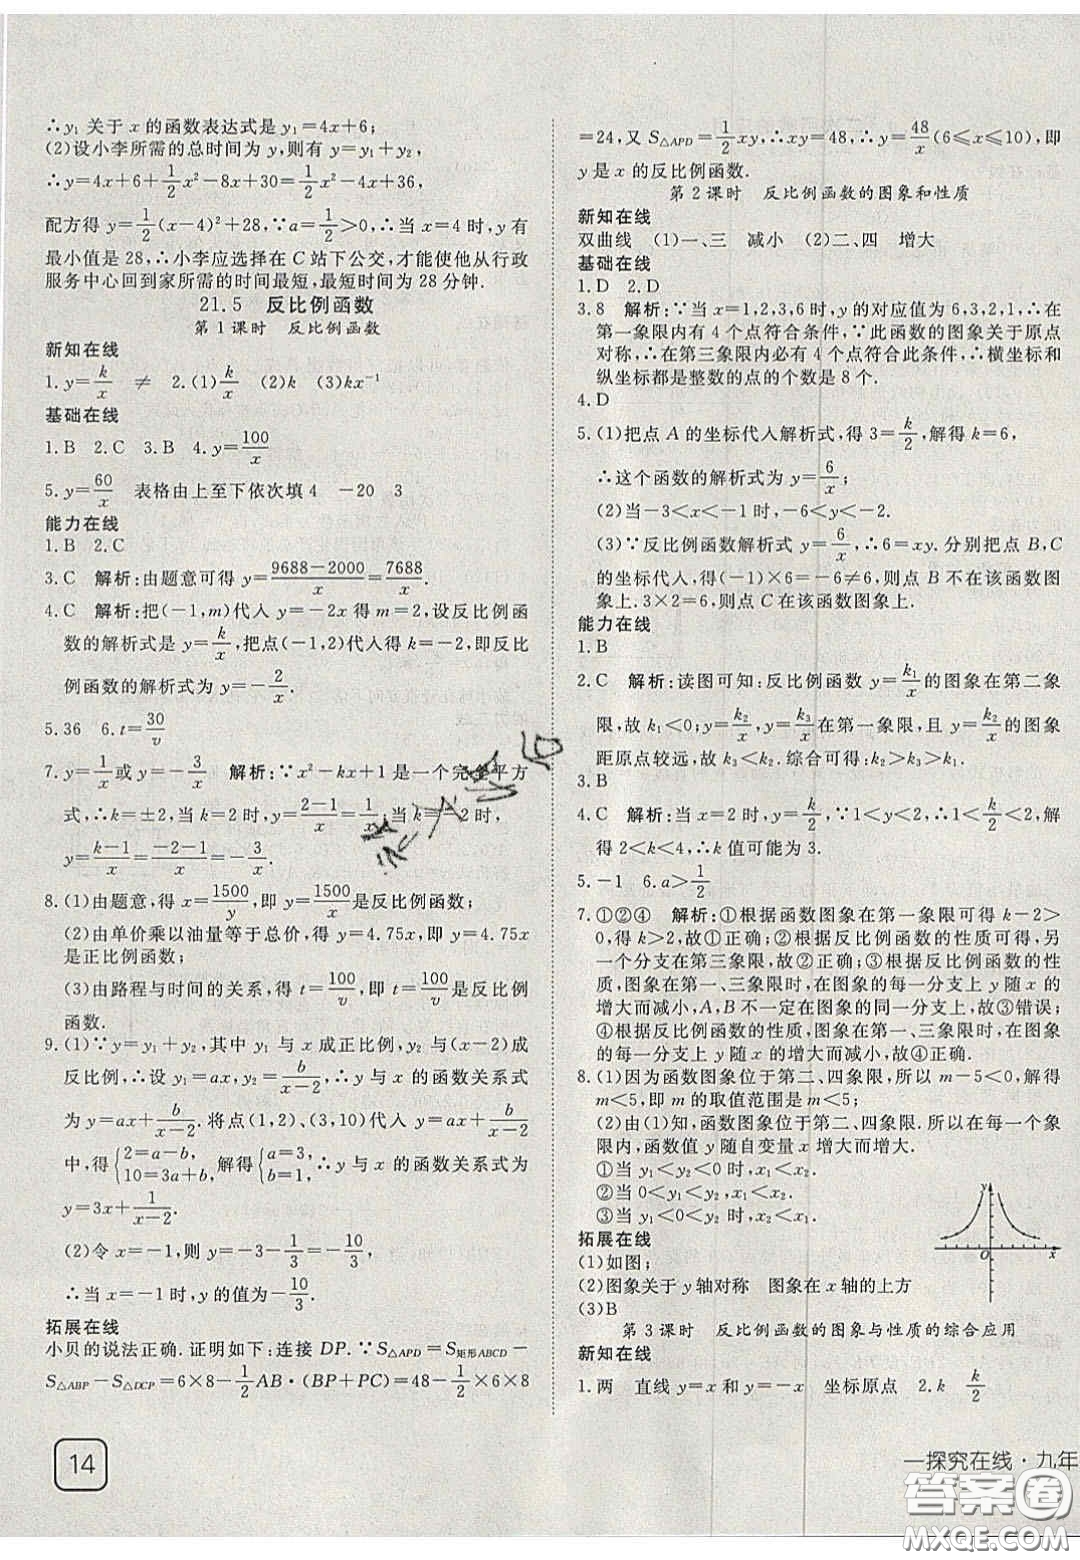 ∴y₁ 关于 x 的函数表达式是 y₁=4x+6;
(2)设小李所需的总时间为 y,则有 y=y₁+y₂,
∴y=4x+6+1/2x²-8x+30=1/2x²-4x+36,
配方得 y=1/2(x-4)²+28,∵a=1/2>0,∴当 x=4 时,y 有
最小值是 28,∴小李应选择在 C 站下公交,才能使他从行政
服务中心回到家所需的时间最短,最短时间为 28 分钟.
21.5 反比例函数
第 1 课时 反比例函数
新知在线
1. y=k/x ≠ 2.(1)k/x (2)k (3)kx⁻¹
基础在线
1. B 2. C 3. B 4. y=100/x
5. y=60/x 表格由上至下依次填 4 -20 3
能力在线
1. B 2. C
3. C 解析:由题意可得 y=(9688-2000)/x=7688/x.
4. C 解析:把(-1,m)代入 y=-2x 得 m=2,设反比例函
数的解析式是 y=k/x,把点(-1,2)代入得 k=-2,即反比
例函数的解析式为 y=-2/x.
5. 36 6. t=30/v
7. y=1/x或 y=-3/x 解析:∵x²-kx+1 是一个完全平方
式,∴k=±2,当 k=2 时,y=(2-1)/x=1/x,当 k=-2 时,
y=(k-1)/x=(-2-1)/x=-3/x.
8. (1)由题意,得 x=1500/y,即 y=1500/x是反比例函数;
(2)由单价乘以油量等于总价,得 y=4.75x,即 y=4.75x
是正比例函数;
(3)由路程与时间的关系,得 t=100/v,即 t=100/v是反比例
函数.
9. (1)∵y=y₁+y₂,其中 y₁ 与 x 成正比例,y₂ 与(x-2)成
反比例,∴设 y₁=ax,y₂=b/(x-2),∴y 与 x 的函数关系式
为 y=ax+b/(x-2). 将点(1,2)、(3,10)代入 y=ax+b/(x-2)
中,得{2=a-b, 10=3a+b, 解得{a=3, b=1, ∴y 与 x 的函数关系式为
y=3x+1/(x-2).
(2)令 x=-1,则 y=-3-1/3=-10/3,
∴当 x=-1 时,y 的值为-10/3.
拓展在线
小贝的说法正确. 证明如下:连接 DP. ∵S△APD=S矩形ABCD-
S△ABP-S△DCP=6×8-1/2AB·(BP+PC)=48-1/2×6×8
14
=24,又 S△APD=1/2xy,∴xy=48,∴y=48/x(6≤x≤10),即
y 是 x 的反比例函数.
第 2 课时 反比例函数的图象和性质
新知在线
双曲线 (1)一、三 减小 (2)二、四 增大
基础在线
1. D 2. D
3. 8 解析:∵当 x=1,2,3,6 时,y 的对应值为 6,3,2,1,∴在
第一象限内有 4 个点符合条件. ∵此函数的图象关于原点
对称,∴在第三象限内必有 4 个点符合此条件,∴横坐标和
纵坐标都是整数的点的个数是 8 个.
4. D
5. (1)把点 A 的坐标代入解析式,得 3=k/2,解得 k=6,
∴这个函数的解析式为 y=6/x;
(2)当-3<x<-1 时,-6<y<-2.
(3)∵反比例函数解析式 y=6/x,∴6=xy. 分别把点 B,C
的坐标代入,得(-1)×6=-6≠6,则点 B 不在该函数图
象上. 3×2=6,则点 C 在该函数图象上.
能力在线
1. B
2. C 解析:读图可知:反比例函数 y=k₁/x的图象在第二象
限,故 k₁<0;y=k₂/x,y=k₃/x在第一象限,且 y=k₂/x的图象
距原点较远,故 k₃<k₂. 综合可得:k₂>k₃>k₁.
3. B
4. C 解析:当 x=2 时,y=k/2,∵1<y<2,∴1<k/2<2,解
得 2<k<4,∴k 值可能为 3.
5. -1 6. a>1/2
7. ①②④ 解析:①根据函数图象在第一象限可得 k-2>
0,得 k>2,故①正确;②根据反比例函数的性质可得,另
一个分支在第三象限,故②正确;③根据反比例函数的性
质,图象在第一、三象限时,在图象的每一分支上 y 随 x 的
增大而减小,A,B 不一定在图象的同一分支上,故③错误;
④根据反比例函数的性质,图象在第一、三象限时,在图象
的每一分支上 y 随 x 的增大而减小,故④正确.
8. (1)因为函数图象位于第二、四象限,所以 m-5<0,解得
m<5,即 m 的取值范围是 m<5;
(2)由(1)知,函数图象位于第二、四象限. 所以在每一个象
限内,函数值 y 随自变量 x 增大而增大.
①当 y₁<y₂<0 时,x₁<x₂;
②当 0<y₁<y₂,x₁<x₂;
③当 y₁<0<y₂ 时,x₂<x₁
拓展在线
(1)如图;
(2)图象关于 y 轴对称 图象在 x 轴的上方
(3)B
y
O
x
第 3 课时 反比例函数的图象与性质的综合应用
新知在线
1. 两 直线 y=x 和 y=-x 坐标原点 2. k k/2
一探究在线·九年
答案圈
MXQE.COM